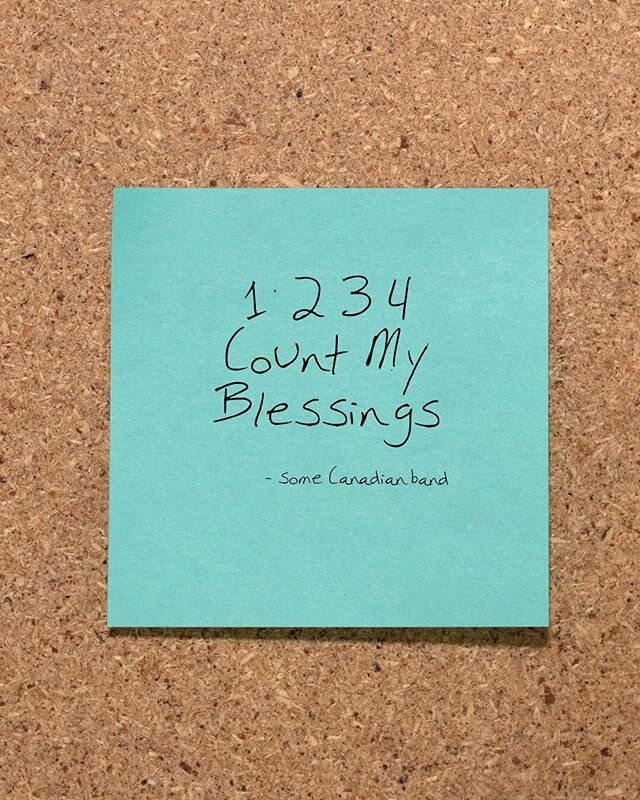 1 2 3 4
Count My
Blessings
- Some Canadian band